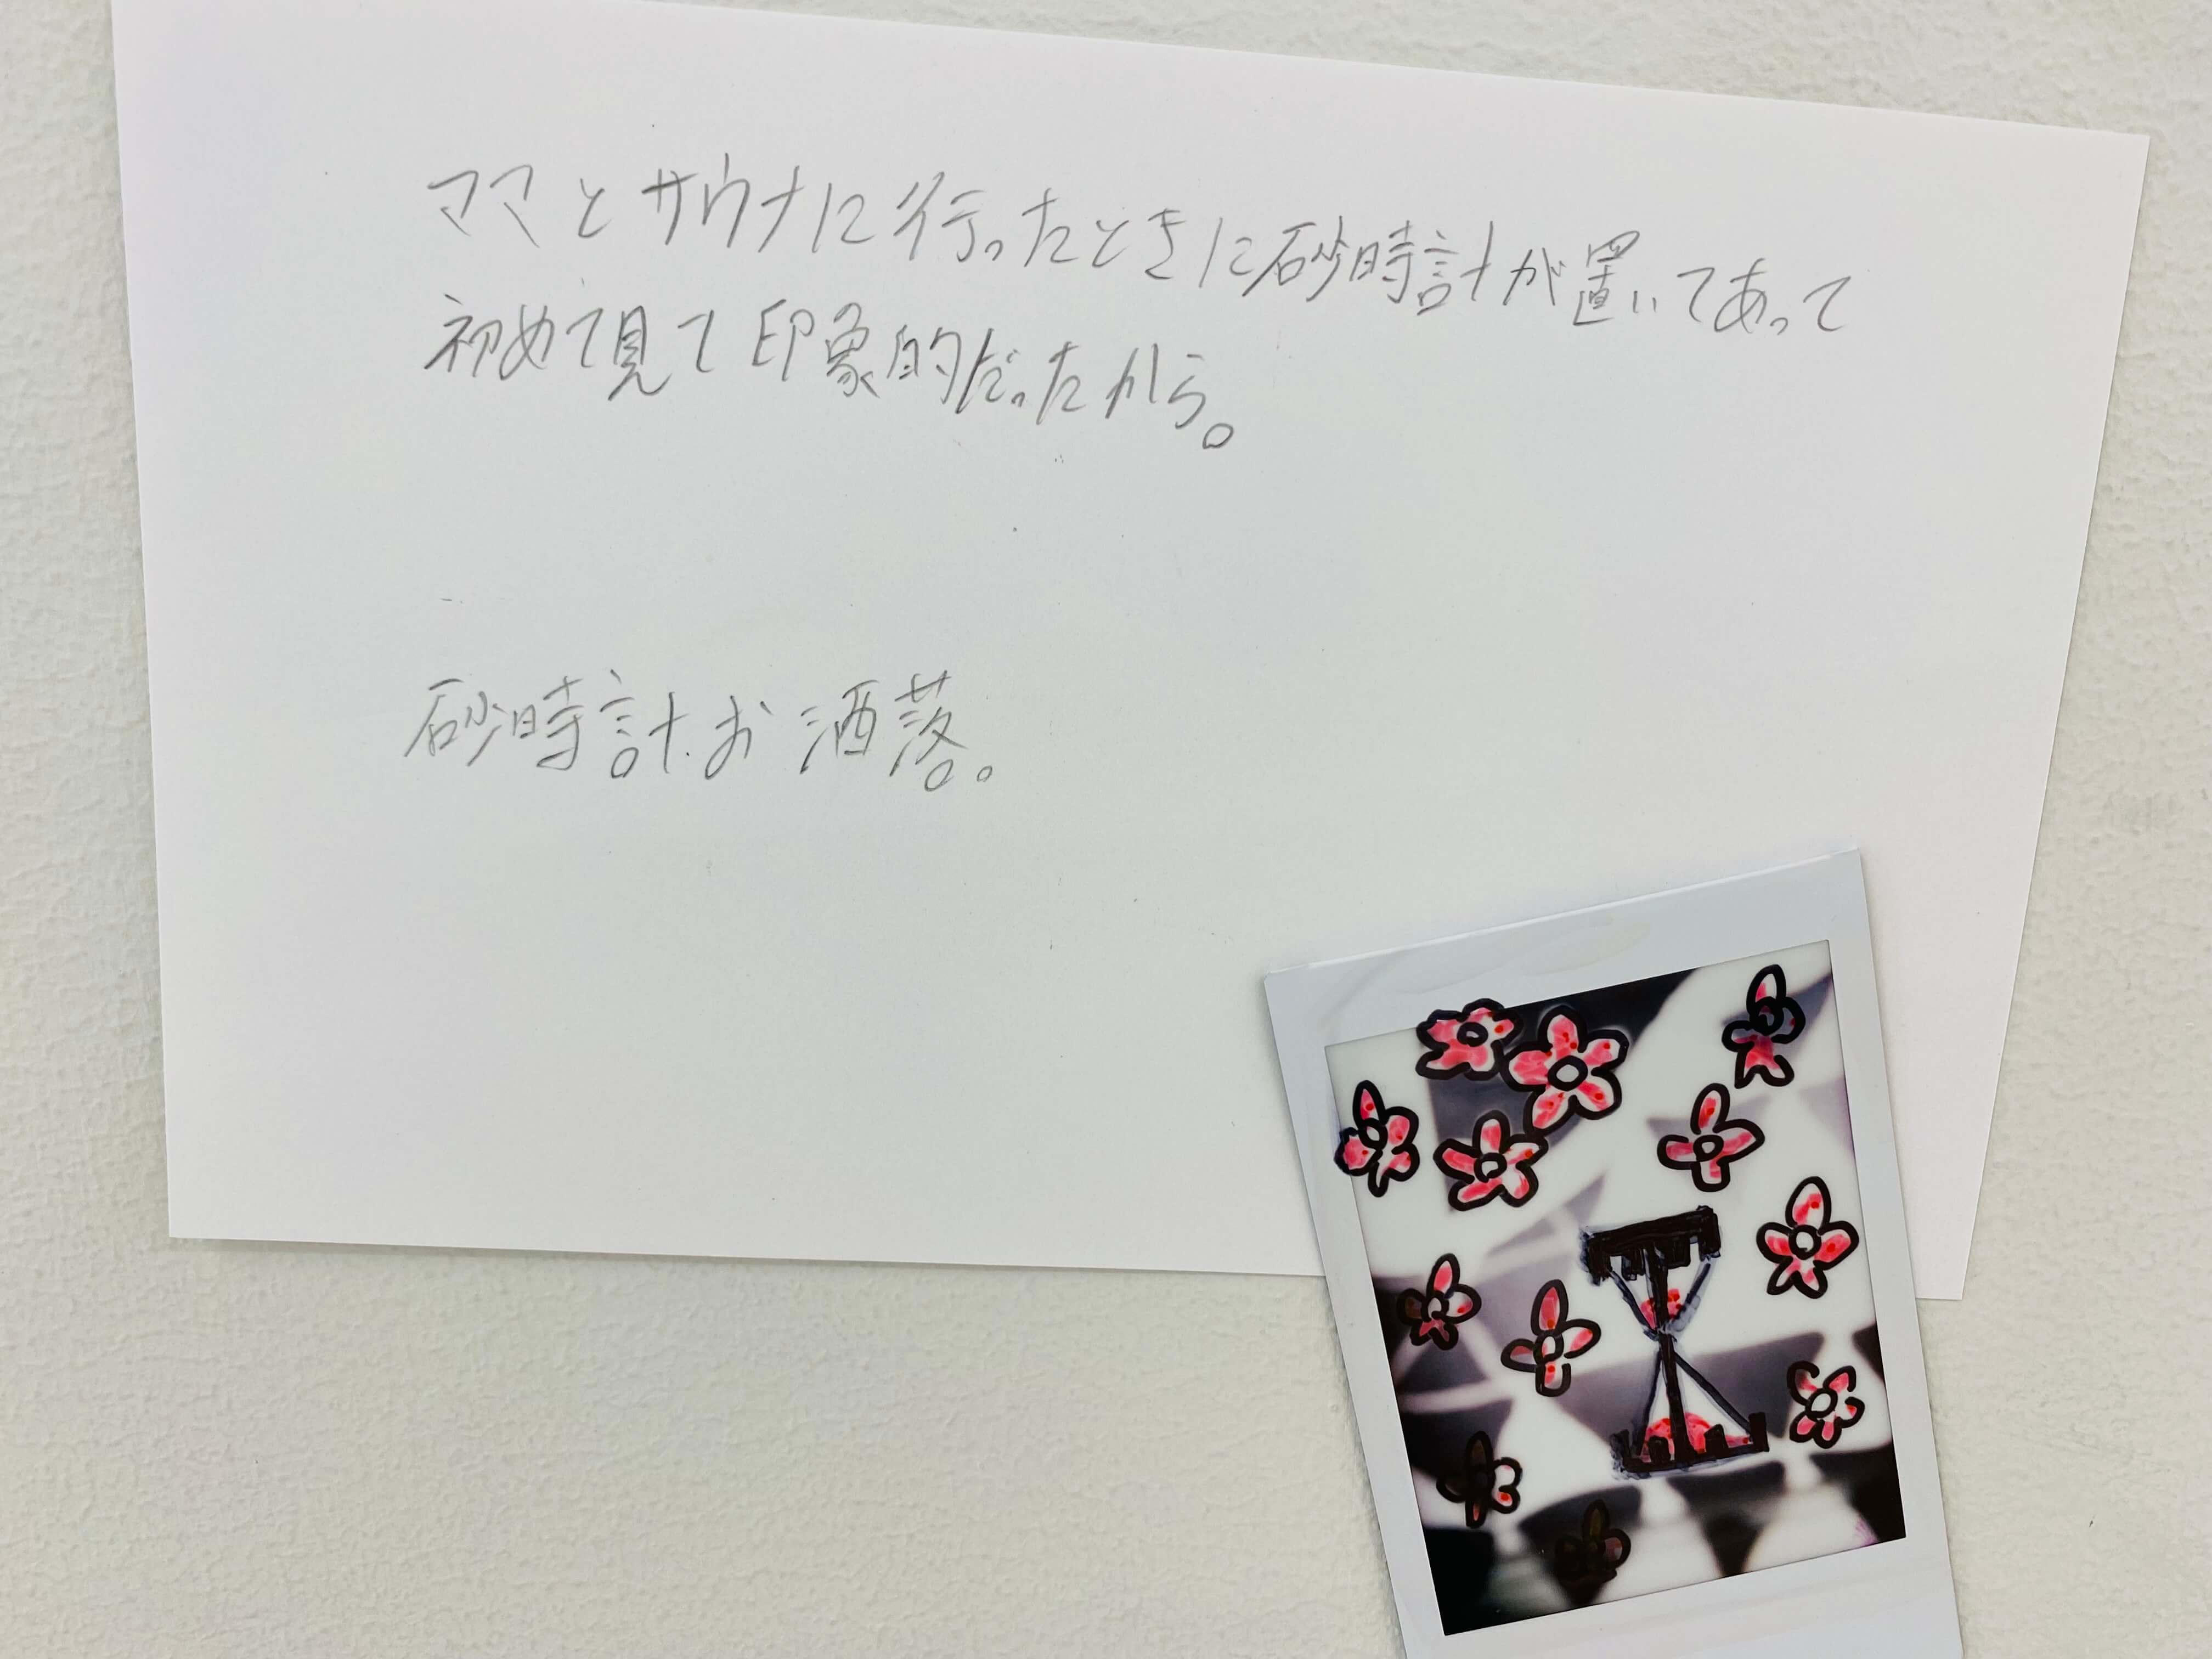 ママとサウナに行ったときに砂時計が置いてあって
初めて見て印象的だったから。
砂時計.お洒落。